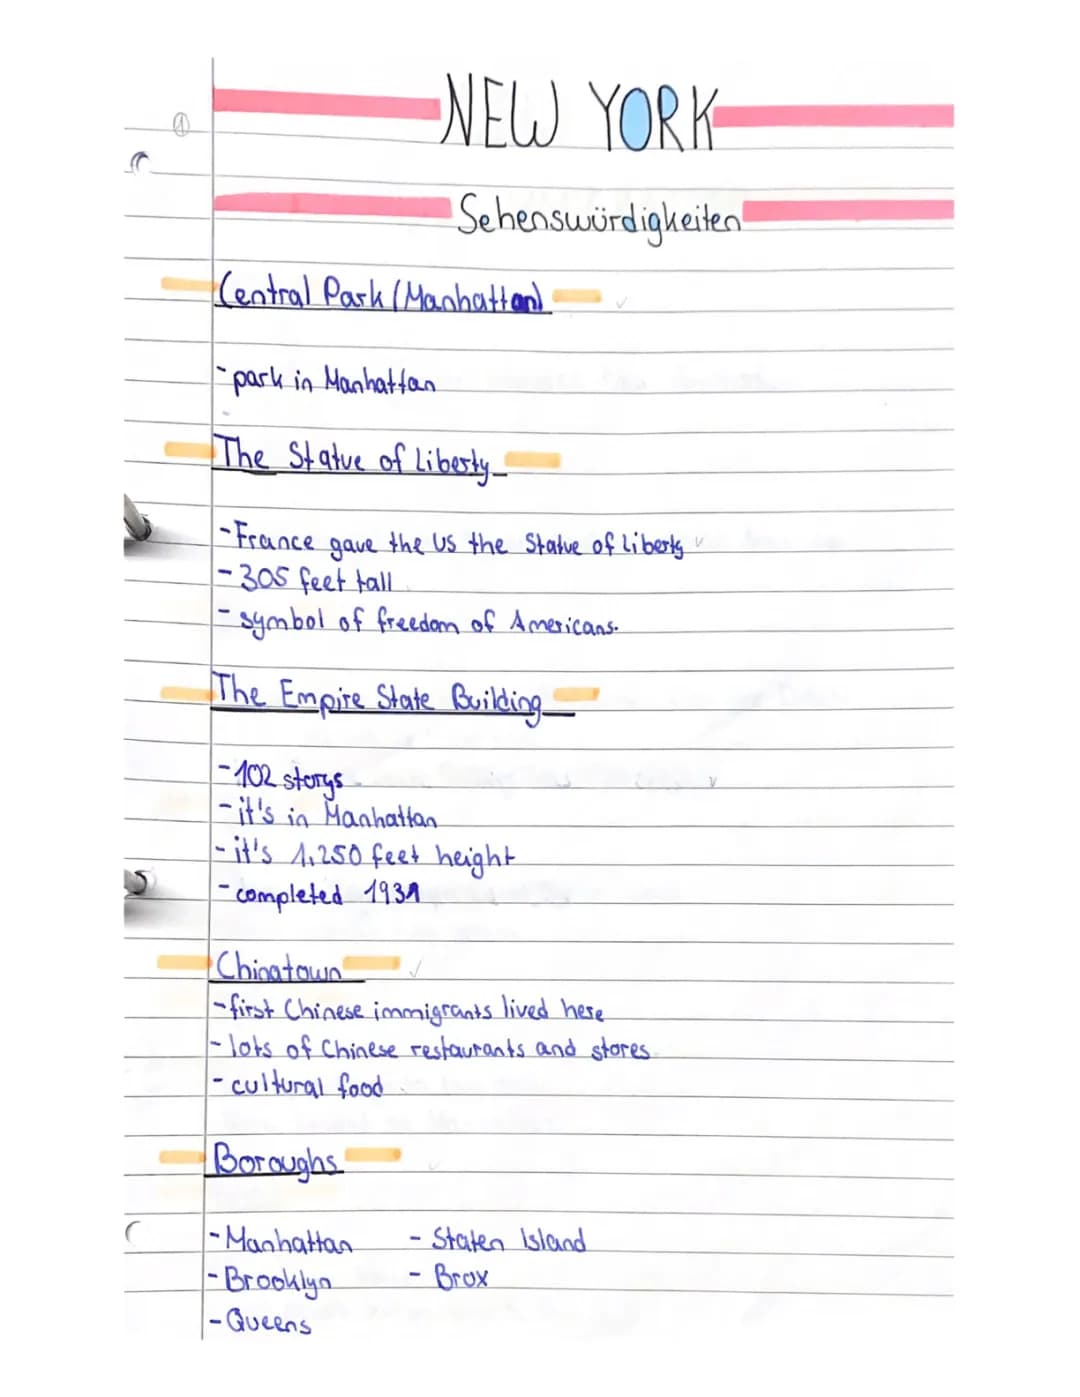 ①
NEW YORK
Sehenswürdigkeiten
Central Park (Manhattan)
- park in Manhattan
The Statue of Liberty
- France gave the US the Statue of liberty
- 305 feet tall
- symbol of freedom of Americans.
The Empire State Building
- 102 storys
- it's in Manhattan
- it's 1,250 feet height
- completed 1931
Chinatown
- first Chinese immigrants lived here
- lots of Chinese restaurants and stores
- cultural food
Boroughs
- Manhattan - Staten Island
- Brooklyn - Brox
- Queens